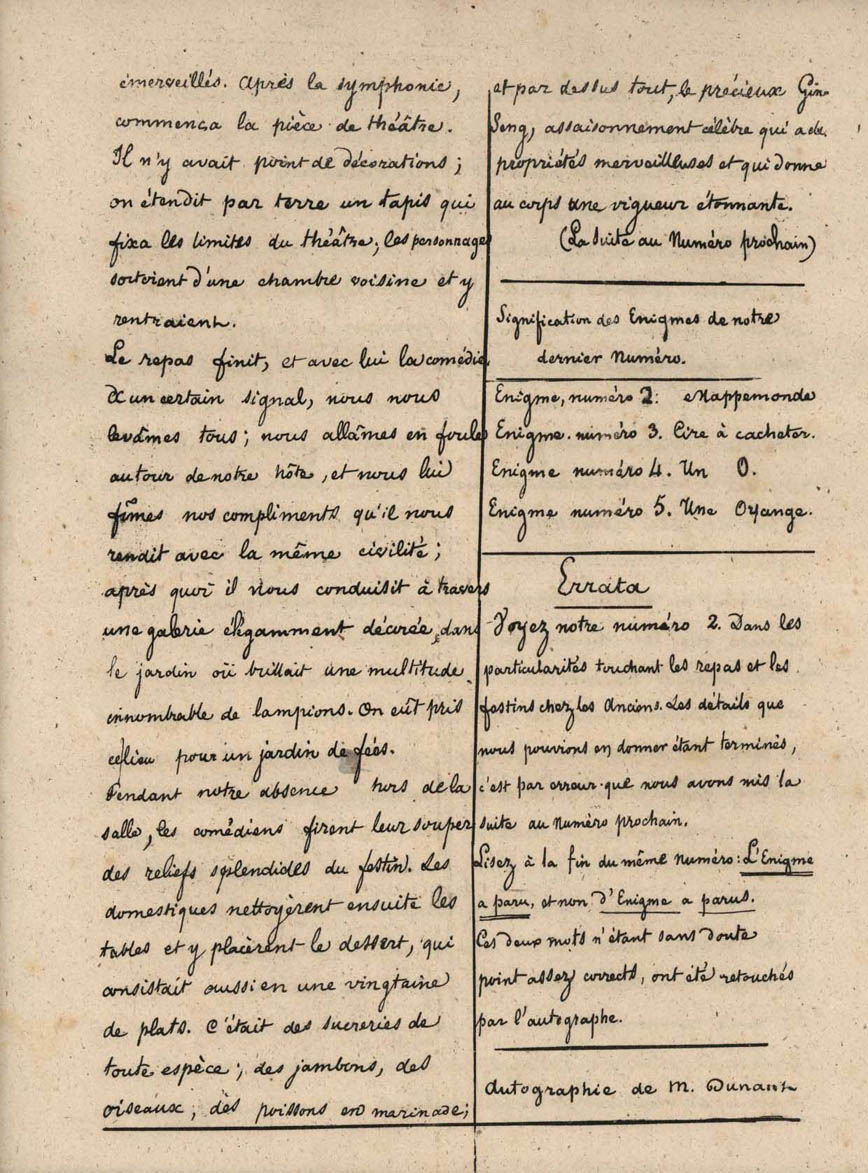 émerveillés. Après la symphonie,
commença la pièce de théâtre.
Il n'y avait point de décorations ;
on étendit par terre un tapis qui
fixa les limites du théâtre ; les personnages
sortoient d'une chambre voisine et y
rentraient.
Le repas finit, et avec lui la comédie
A un certain signal, nous nous
levâmes tous ; nous allâmes en foule
autour de notre hôte, et nous lui
fîmes nos compliments qu'il nous
rendit avec la même civilité ;
après quoi il nous conduisit à travers
une galerie élégamment décorée, dans
le jardin où brillait une multitude
innombrable de lampions. On eût pris
ce lieu pour un jardin de fées.
Pendant notre absence hors de la
salle, les comédiens firent leur souper
des reliefs splendides du festin. Les
domestiques nettoyèrent ensuite les
tables et y placèrent le dessert, qui
consistait aussi en une vingtaine
de plats. C'était des sucreries de
toute espèce ; des jambons, des
oiseaux ; des poissons en marinade ;
et par dessus tout, le précieux Gin-
Seng, assaisonnement célèbre qui a de
propriétés merveilleuses et qui donne
au corps une vigueur étonnante.
(La suite au Numéro prochain)
Signification des Enigmes de notre
dernier Numéro.
Enigme, numéro 2 : Mappemonde
Enigme. numéro 3. Cire à cacheter.
Enigme numéro 4. Un O.
Enigme numéro 5. Une Orange.
Errata
Voyez notre numéro 2. Dans les
particularités touchant les repas et les
festins chez les Anciens. Les détails que
nous pouvions en donner étant terminés,
c'est par erreur que nous avons mis la
suite au Numéro prochain.
Lisez à la fin du même numéro : L'Enigme
a paru, et non d'Enigme a parus.
Ces deux mots n'étant sans doute
point assez corrects, ont été retouchés
par l'autographe.
Autographie de M. Dunant